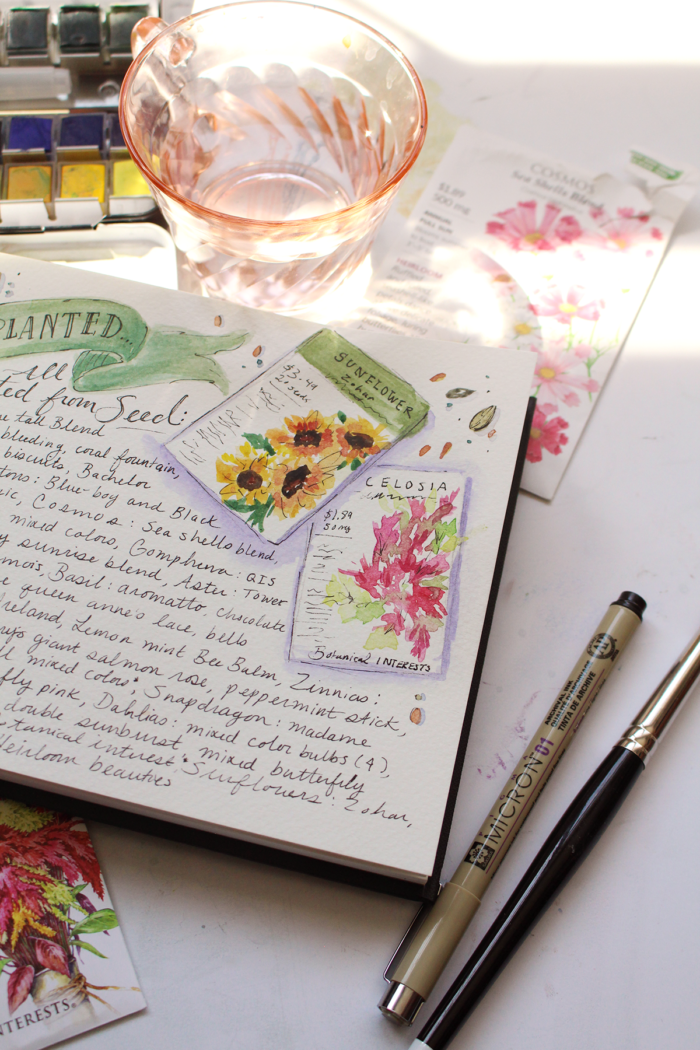 PLANTED...
All
ted from Seed:
tall Blend
bleeding, coral fountain,
biscuits, Bachelor
tons: Blue-boy and Black
ic, Cosmos: Sea shells blend,
mixed colors, Gomphena: QIS
y sunrise blend, Aster: Tower
Basil: aromatto chocolate
queen anne's lace, bells
Ireland, Lemon mint Bee Balm, Zinnias:
giant salmon rose, peppermint stick,
mixed colors, Snapdragon: madame
fly pink, Dahlias: mixed color bulbs (4),
double sunburst, mixed butterfly
tanical interest Sunflowers: Zohar,
Heirloom beauties
SUNFLOWER
Zohar
$3.49
20 seeds
CELOSIA
$1.99
50 mg
Botanical INTERESTS
COSMOS
Sea Shells Blend
$1.89
500 mg
ANNUAL
FULL SUN
HEIRLOOM
MICRON 01
TINTA DE ARCHIVE
NTERESTS